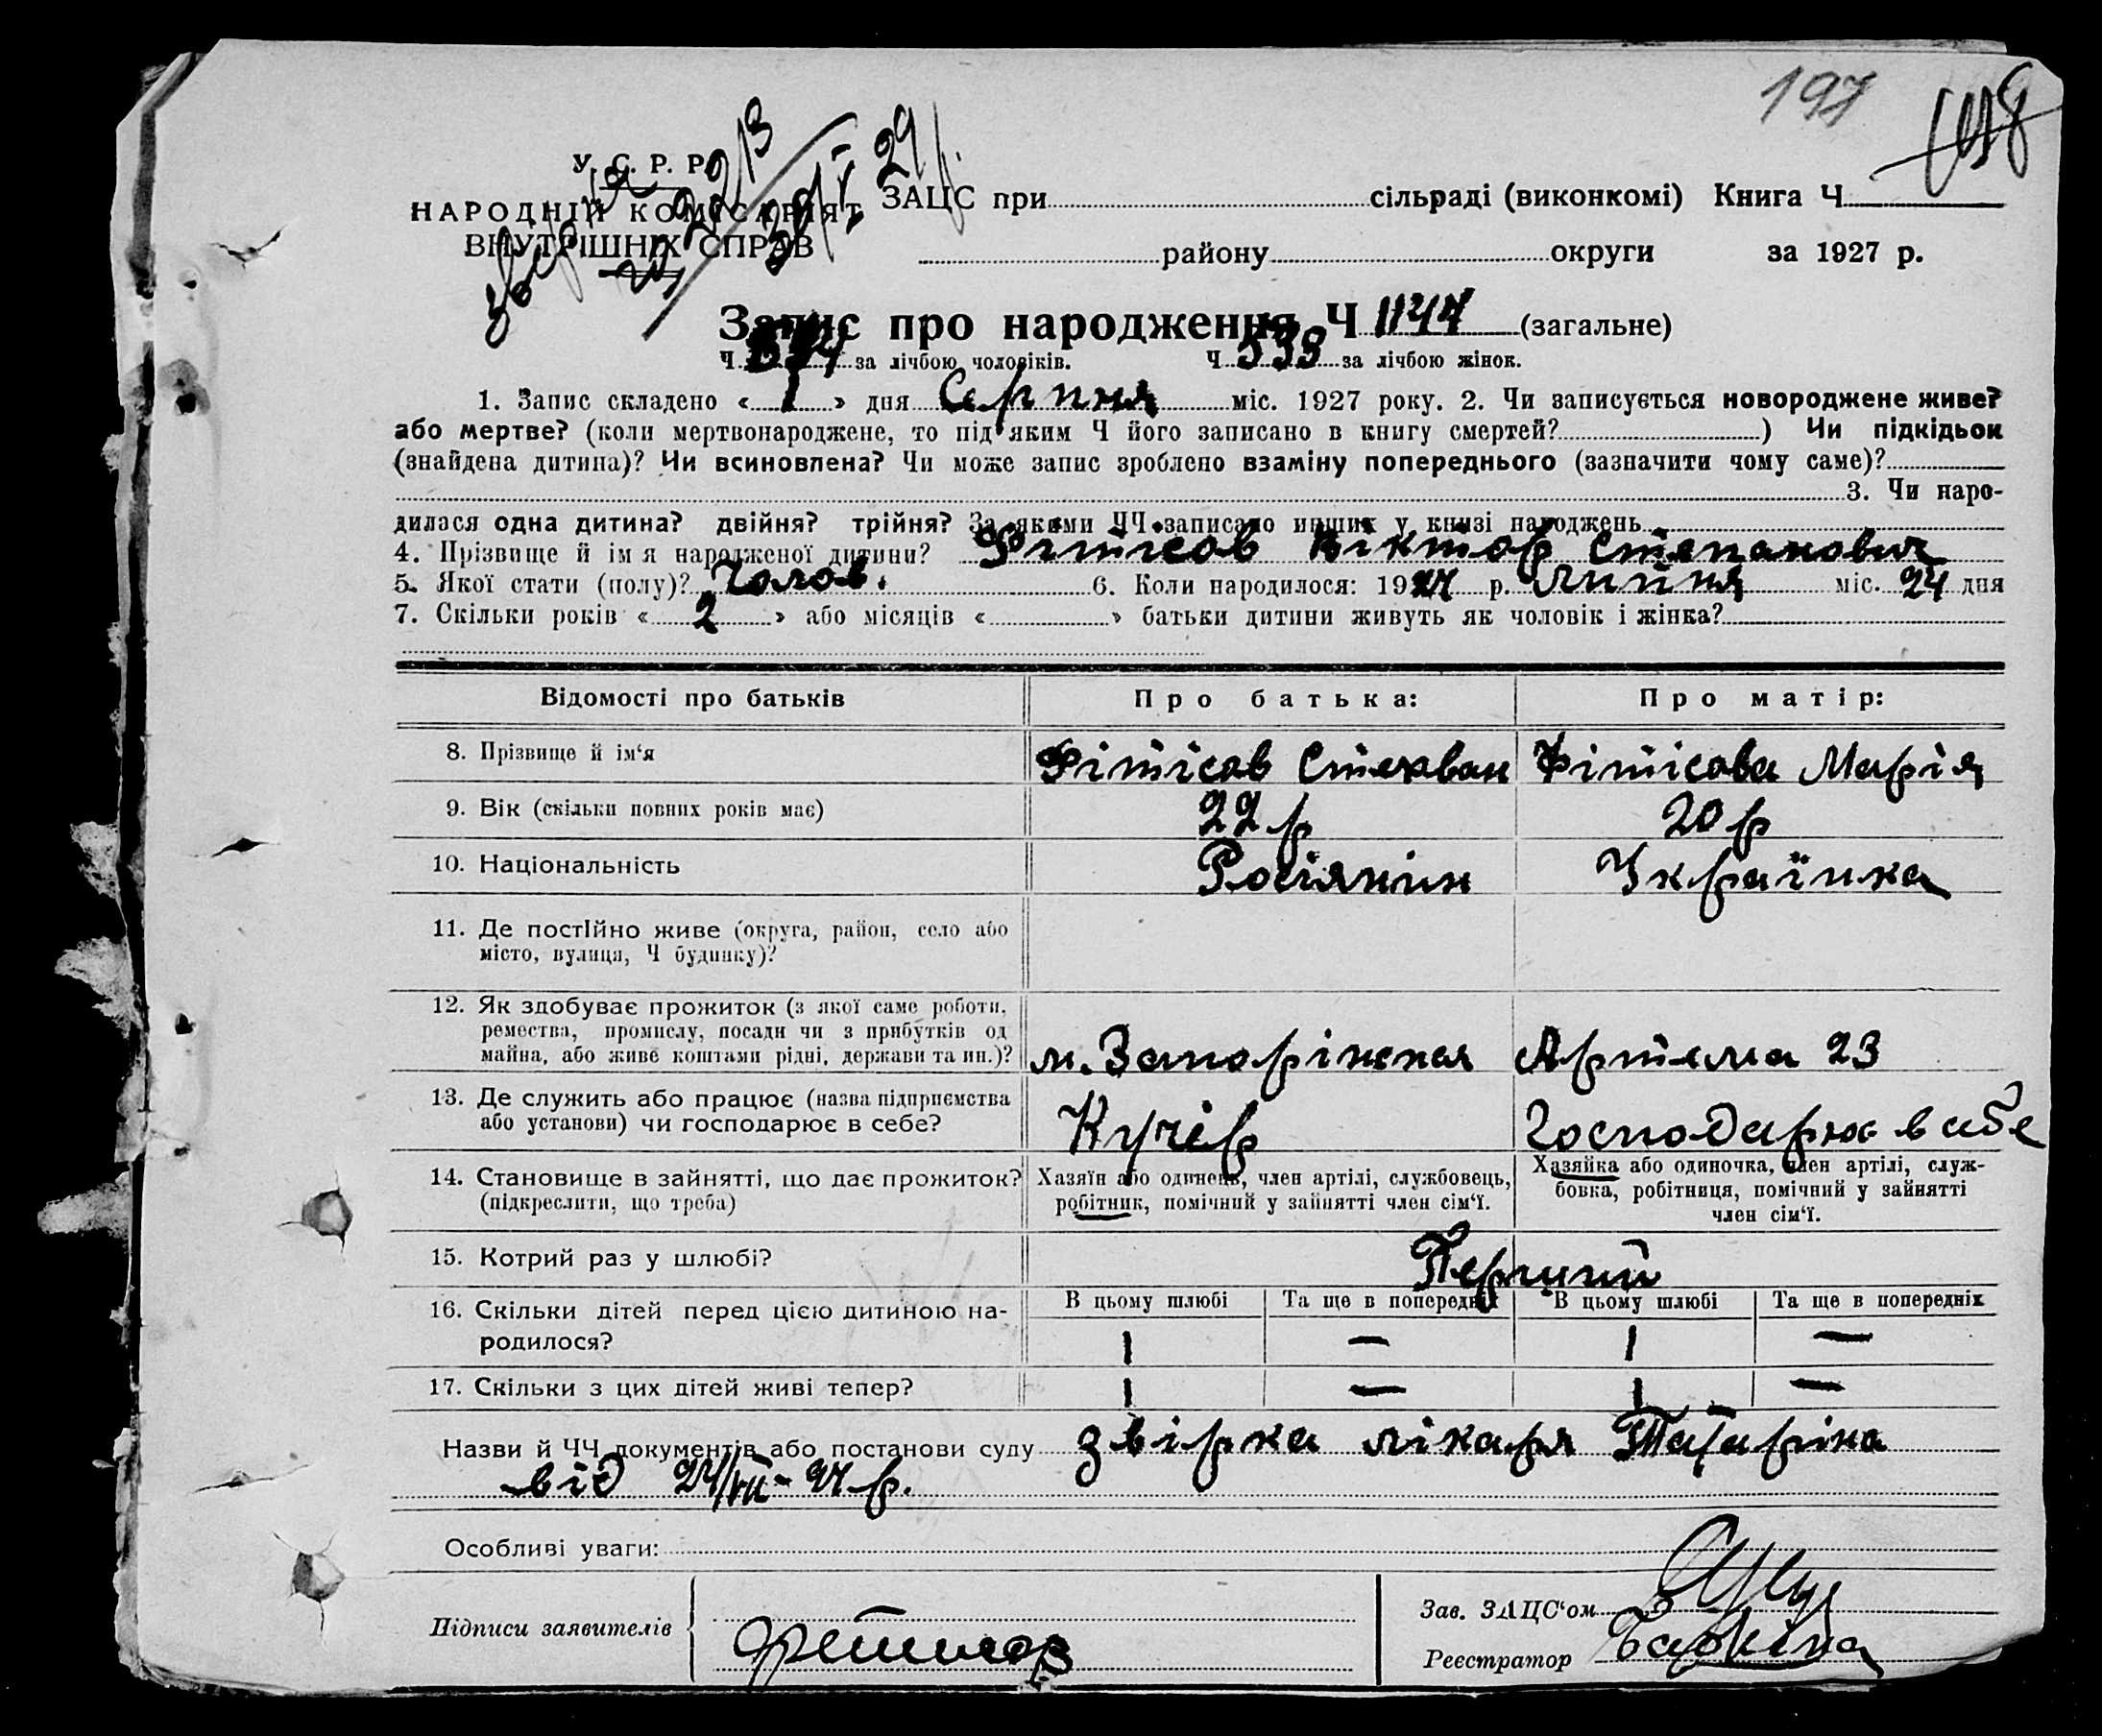 197
У. С. Р. Р.
НАРОДНІЙ КОМІСАРІЯТ
ВНУТРІШНІХ СПРАВ
ЗАЦС при сільраді (виконкомі) Книга Ч
району округи за 1927 р.
Запис про народження Ч 1147 (загальне)
Ч за лічбою чоловіків. Ч 533 за лічбою жінок.
1. Запис складено « 1 » дня Серпня міс. 1927 року. 2. Чи записується новороджене живе?
або мертве? (коли мертвонароджене, то під яким Ч його записано в книгу смертей? ) Чи підкідьок
(знайдена дитина)? Чи всиновлена? Чи може запис зроблено взаміну попереднього (зазначити чому саме)?
3. Чи наро-
дилася одна дитина? двійня? трійня? За якими ЧЧ записано инших у книзі народжень
4. Прізвище й ім я народженої дитини? Фітісов Віктор Степанович
5. Якої стати (полу)? Чолов. 6. Коли народилося: 1927 р. Липня міс. 24 дня
7. Скільки років « 2 » або місяців « » батьки дитини живуть як чоловік і жінка?
Відомості про батьків Про батька: Про матір:
8. Прізвище й ім‘я Фітісов Стехван Фітісова Марія
9. Вік (скільки повних років має) 22 р 20 р
10. Національність Росіянин Українка
11. Де постІйно живе (округа, район, село або
місто, вулиця, Ч будинку)?
12. Як здобуває прожиток (з якої саме роботи,
ремества, промислу, посади чи з прибутків од
майна, або живе коштами рідні, держави та ин.)? м. Запоріжжя Артема 23
13. Де служить або працює (назва підприємства
або установи) чи господарює в себе? Кучер Господарює в себе
14. Становище в зайнятті, що дає прожиток?
(підкреслити, що треба)
Хазяїн або одинець, член артілі, службовець,
робітник, помічний у зайнятті член сім‘ї.
Хазяйка або одиночка, член артілі, служ-
бовка, робітниця, помічний у зайнятті
член сім‘ї.
15. Котрий раз у шлюбі? Перший
16. Скільки дітей перед цією дитиною на-
родилося?
В цьому шлюбі Та ще в попередніх В цьому шлюбі Та ще в попередніх
1 — 1 —
17. Скільки з цих дітей живі тепер? 1 — 1 —
Назви й ЧЧ документів або постанови суду звірка лікаря Татаріна
від 24/VII-27 р.
Особливі уваги:
Зав. ЗАЦС‘ом
Підписи заявителів Фетисов
Реєстратор Бабкіна